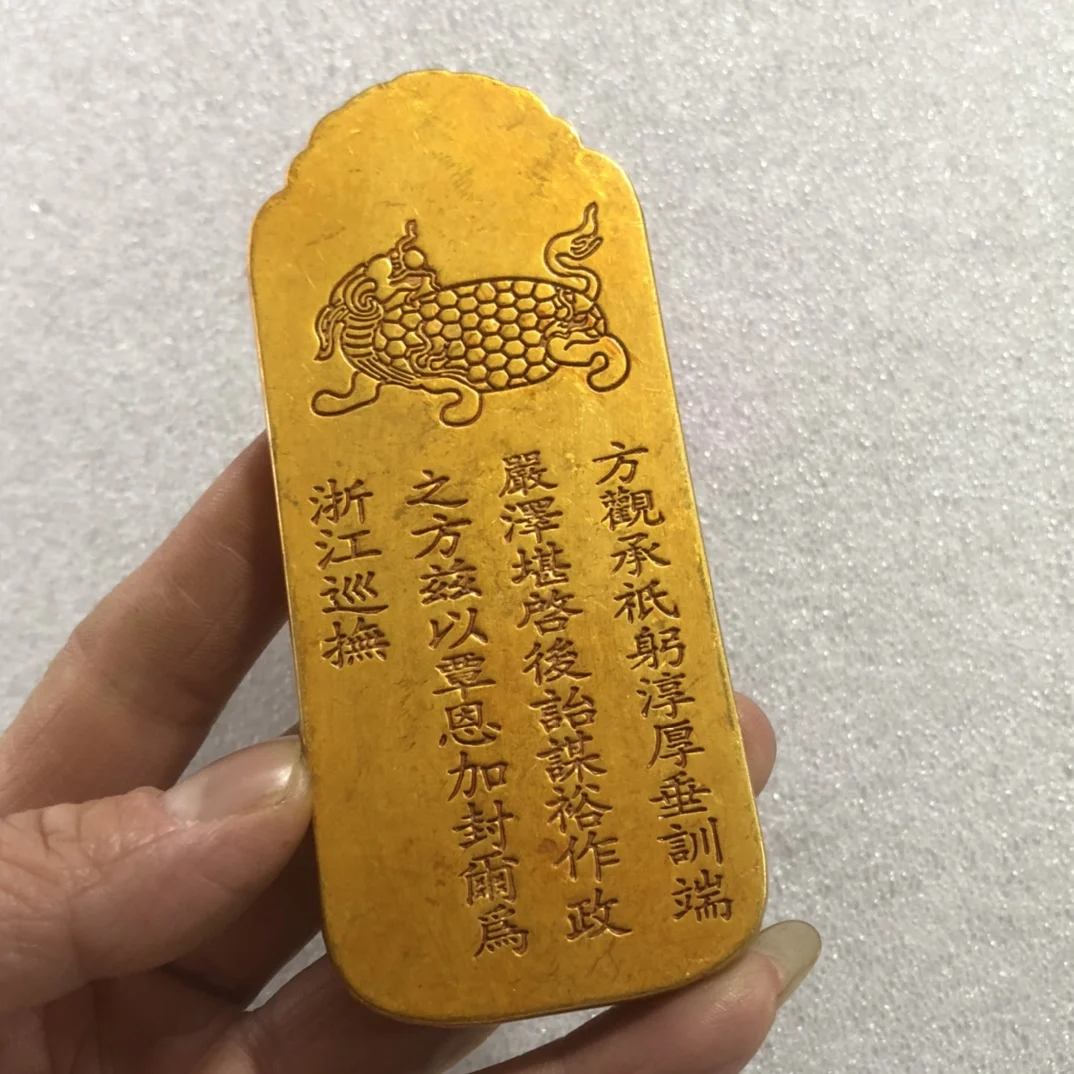 方觀承祇躬淳厚垂訓端
嚴澤堪啓後詒謀裕作政
之方茲以覃恩加封爾爲
浙江巡撫